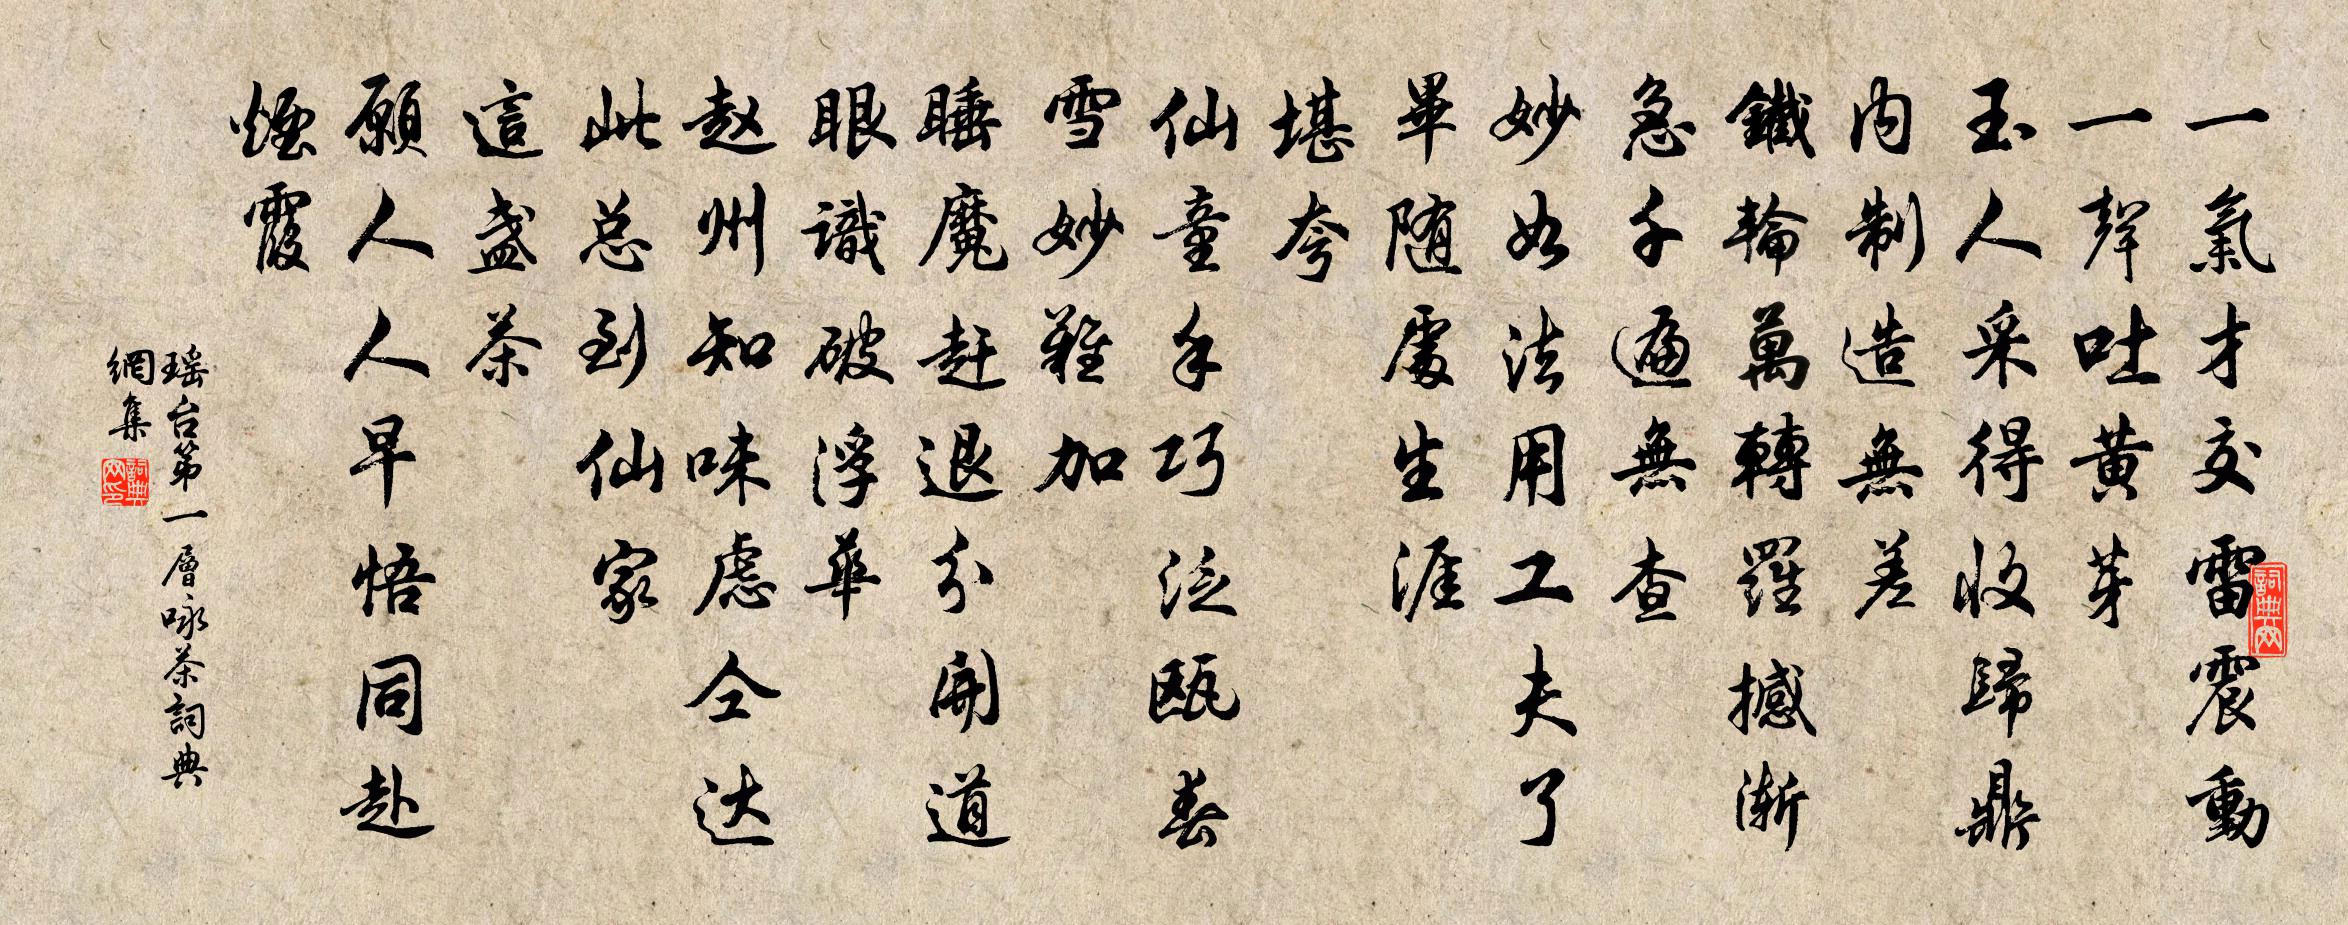 一氣才交雷震動
一聲吐黄芽
玉人采得收歸鼎
内制造無差
鐵輪萬轉羅撼漸
急千遍無查
妙如法用工夫了
畢随處生涯
堪夸
仙童手巧泛瓯春
雪妙難加
睡魔赶退分開道
眼識破浮華
赵州知味虑仝达
此总到仙家
這盏茶
願人人早悟同赴
煙霞
瑶台第一層咏茶詞典
網集
詞典网
詞典网印